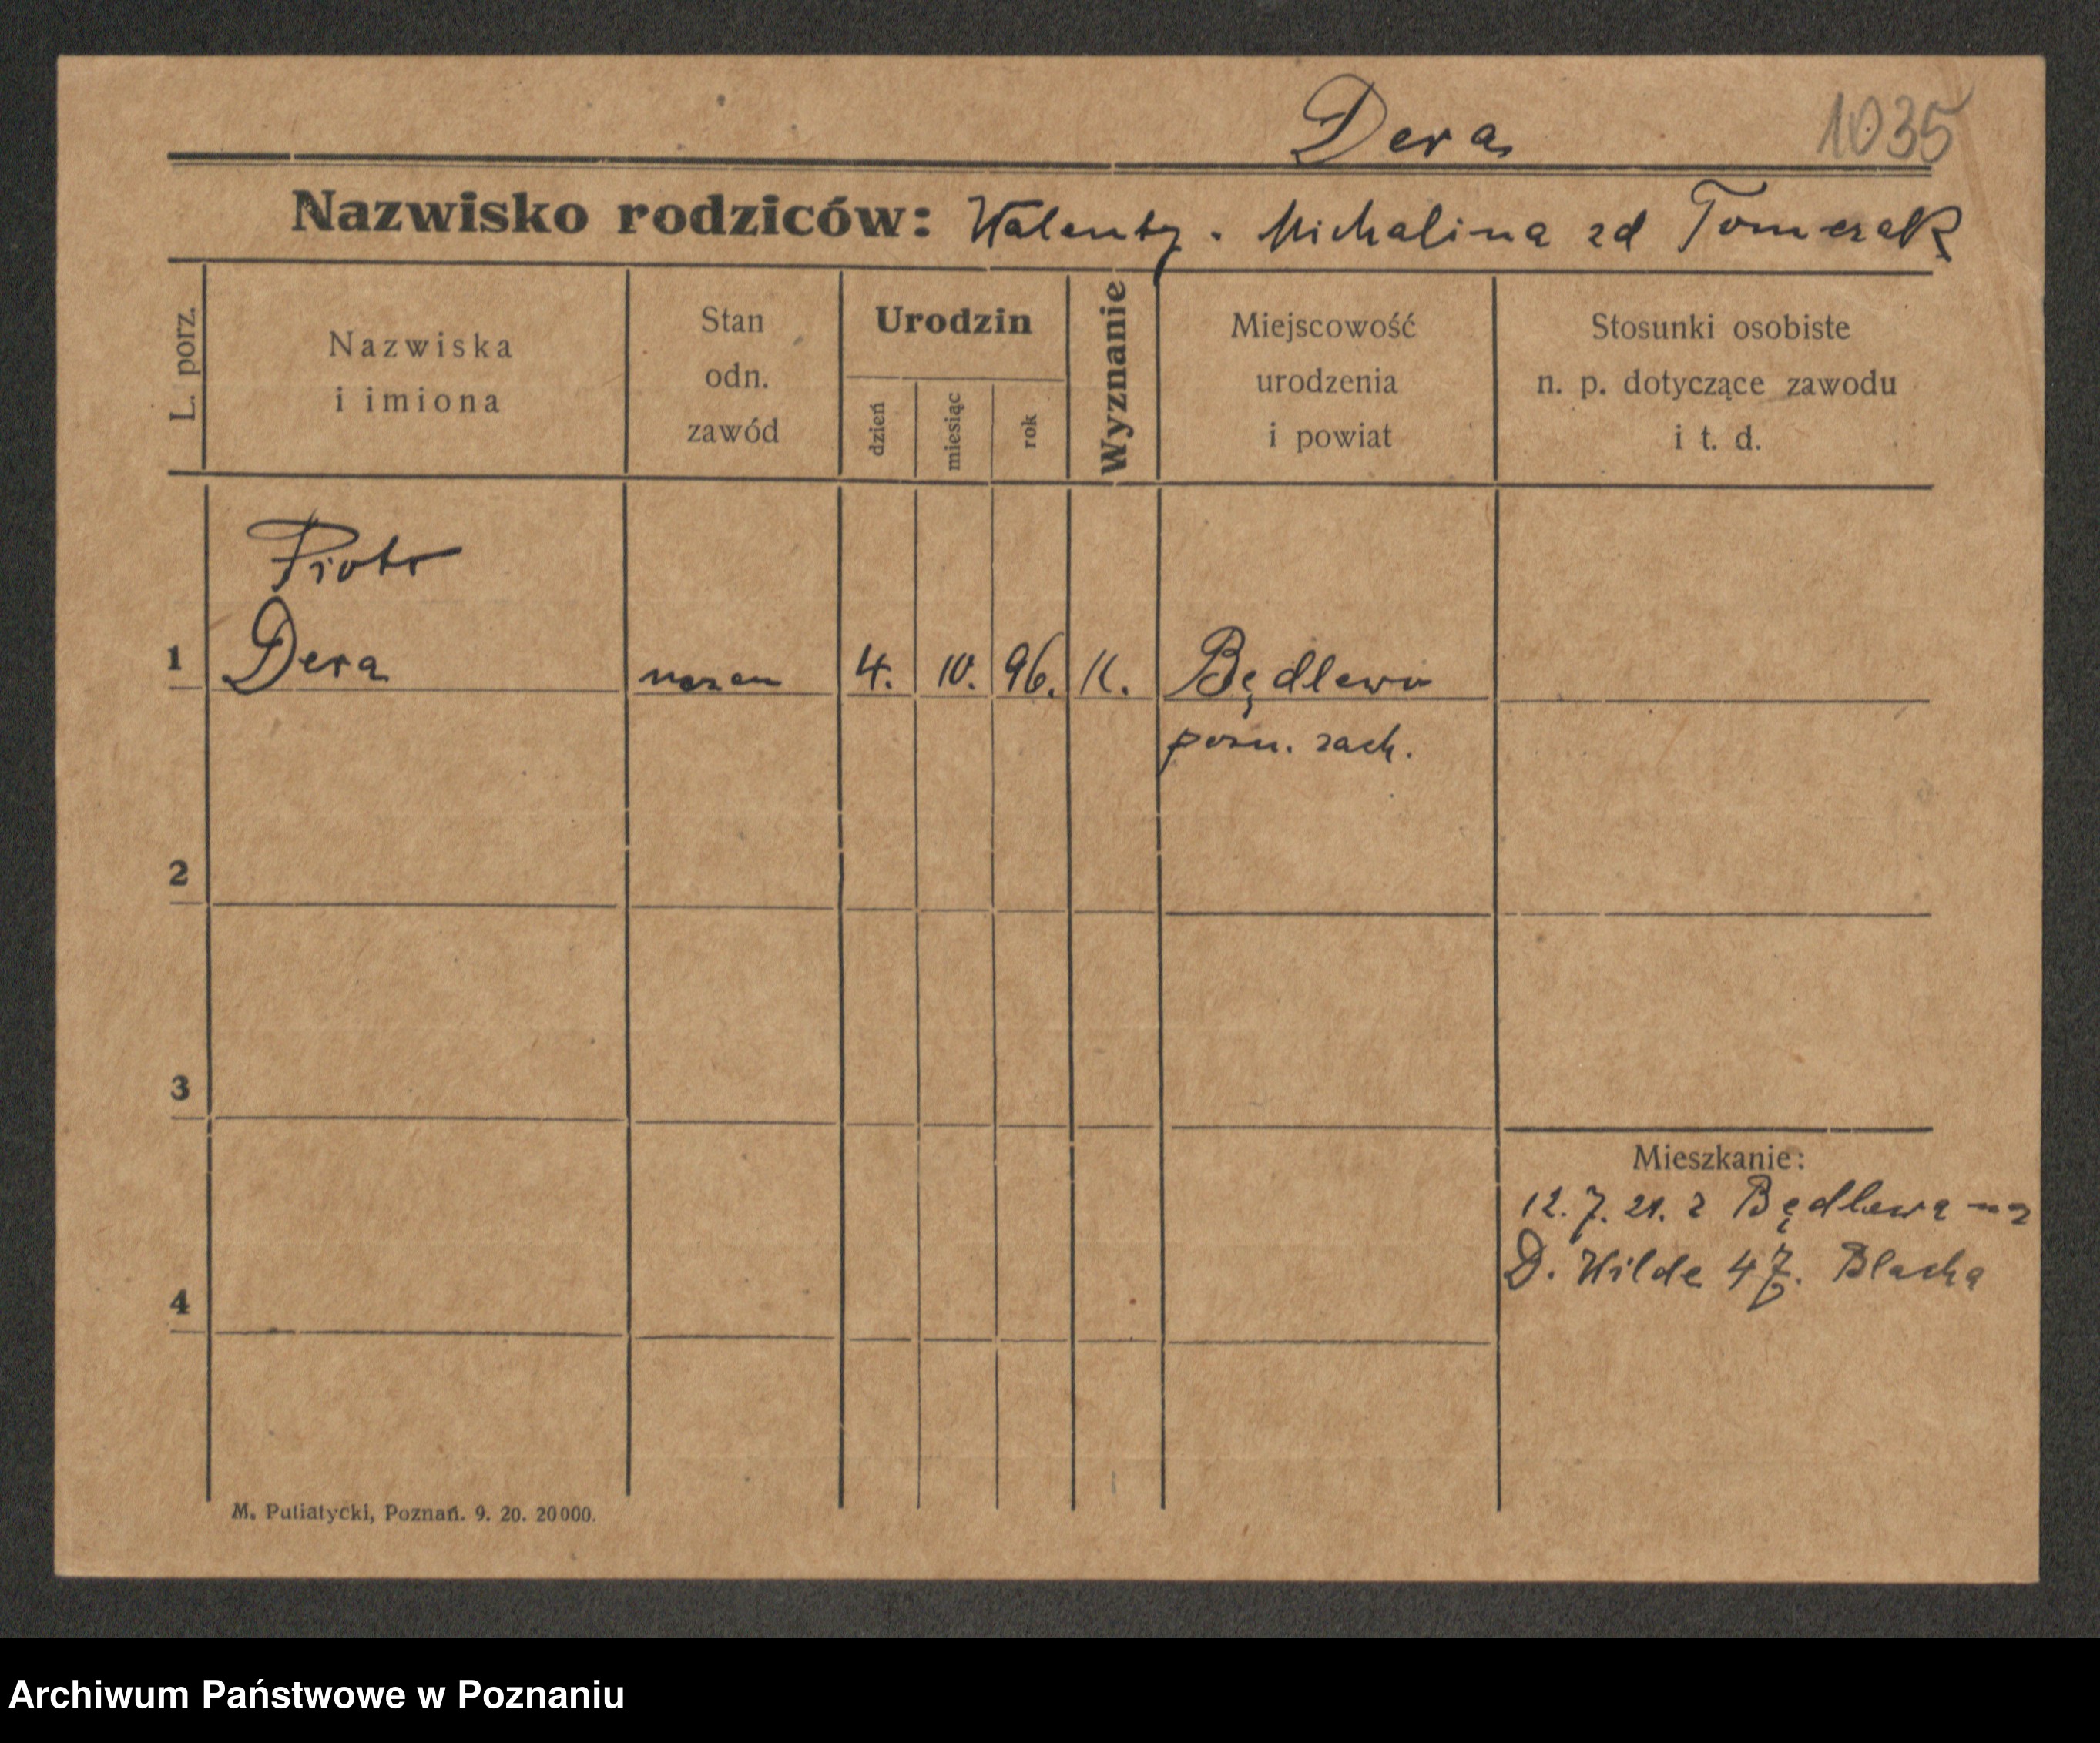 Dera 1035
Nazwisko rodziców: Walenty. Michalina zd Tomczak
L. porz.
Nazwiska
i imiona
Stan
odn.
zawód
Urodzin
dzień
miesiąc
rok
Wyznanie
Miejscowość
urodzenia
i powiat
Stosunki osobiste
n. p. dotyczące zawodu
i t. d.
Piotr
1 Dera 4. 10. 96. K. Będlewo
pozn. zach.
2
3
Mieszkanie:
12. 7. 21. z Będlewa na
D. Wilde 47. Blacha
4
M. Putiatycki, Poznań. 9. 20. 20000.
Archiwum Państwowe w Poznaniu